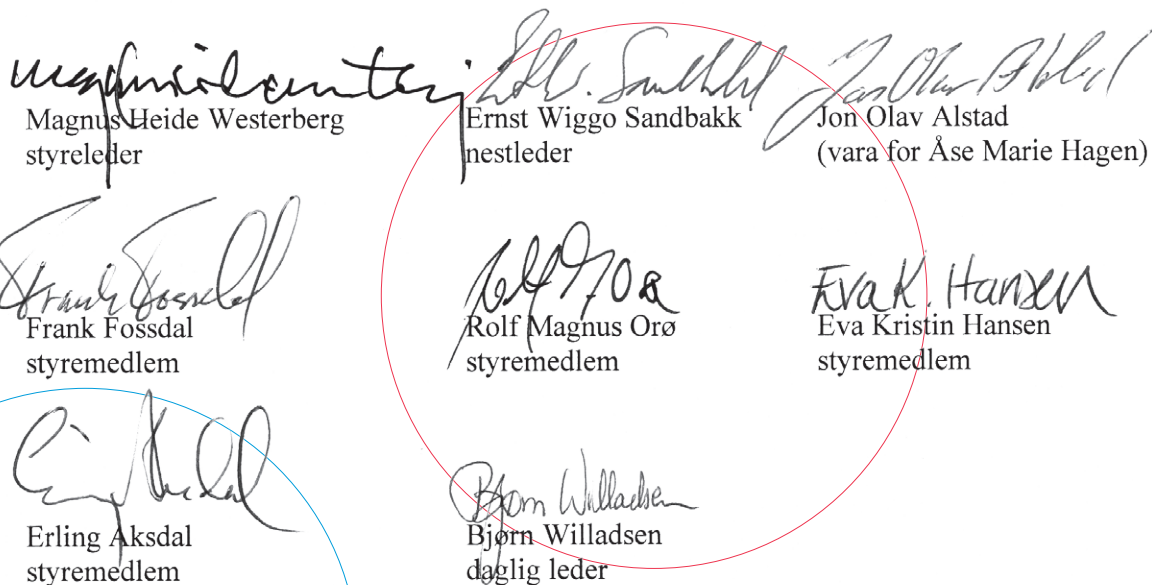 Magnus Heide Westerberg
styreleder
Ernst Wiggo Sandbakk
nestleder
Jon Olav Alstad
(vara for Åse Marie Hagen)
Frank Fossdal
Frank Fossdal
styremedlem
Rolf Magnus Orø
styremedlem
Eva K. Hansen
Eva Kristin Hansen
styremedlem
Erling Aksdal
styremedlem
Bjørn Willadsen
Bjørn Willadsen
daglig leder